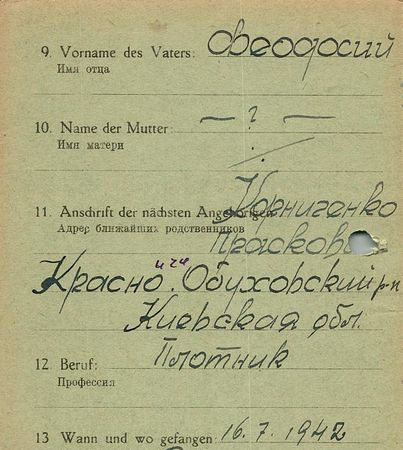 9. Vorname des Vaters: Феодосий
Имя отца
10. Name der Mutter: — ? —
Имя матери
11. Anschrift der nächsten Angehörigen Корниенко
Адрес ближайших родственников
Красно Обуховский р-н
Киевская обл.
12. Beruf: Плотник
Профессия
13 Wann und wo gefangen: 16.7.1942